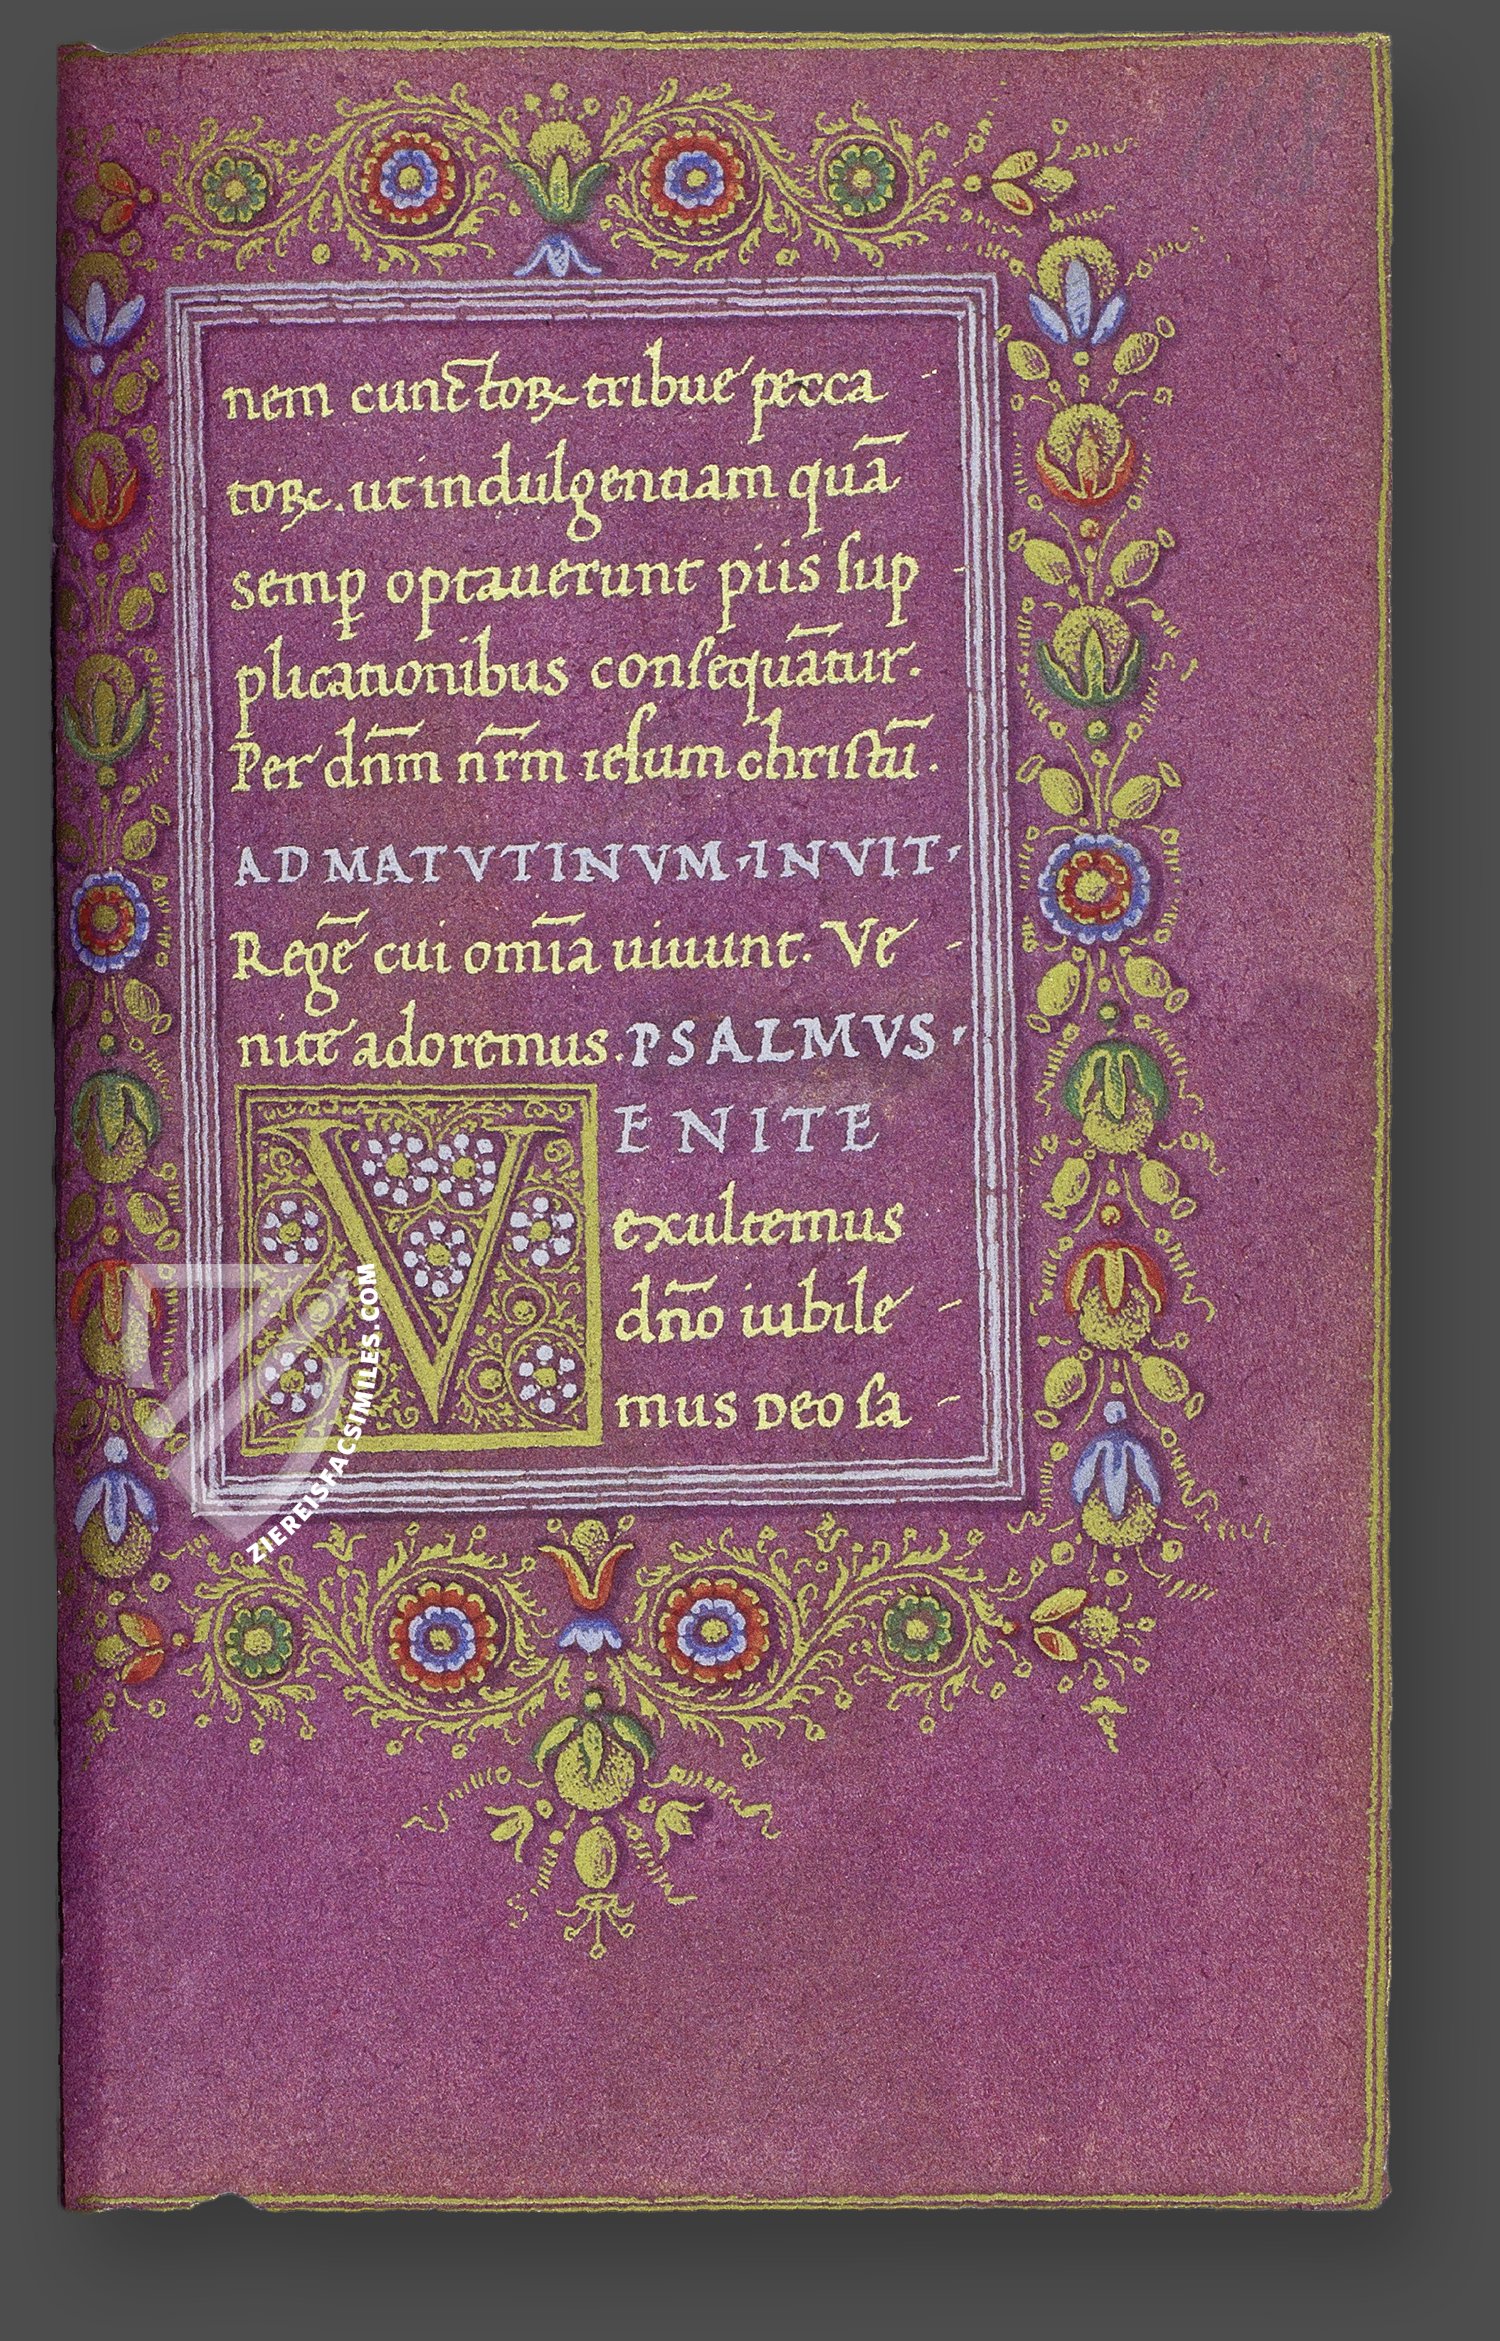 nem cunctoꝝ tribue pecca-
toꝝ. ut indulgentiam quā
semꝑ optauerunt piis ſup-
plicationibus conſequātur.
Per dn̄m nr̄m ieſum chriſtū.
AD MATVTINVM, INVIT,
Regē cui om̄ia uiuunt. Ve-
nite adoremus. PSALMVS,
VENITE
exultemus
dn̄o iubile-
mus Deo ſa-
ZIEREISFACSIMILES.COM